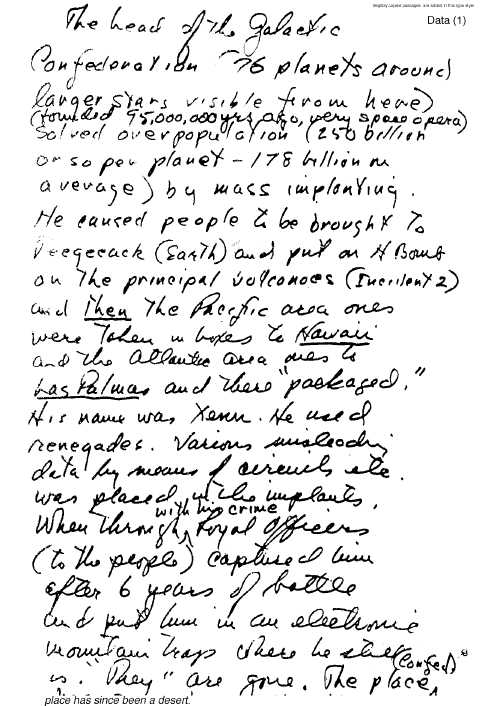 Data (1)
The head of the Galactic
Confederation (76 planets around
larger stars visible from here)
(founded 95,000,000 yrs ago, very space opera)
solved overpopulation (250 billion
or so per planet – 178 billion on
average) by mass implanting.
He caused people to be brought to
Teegeeack (Earth) and put an H Bomb
on the principal volcanoes (Incident 2)
and then the Pacific area ones
were taken in boxes to Hawaii
and the Atlantic area ones to
Las Palmas and there "packaged."
His name was Xenu. He used
renegades. Various misleading
data by means of circuits etc.
was placed in the implants.
When through with his crime Loyal Officers
(to the people) captured him
after 6 years of battle
and put him in an electronic
mountain trap where he still
is. "They" are gone. The place (Confed.)
place has since been a desert.